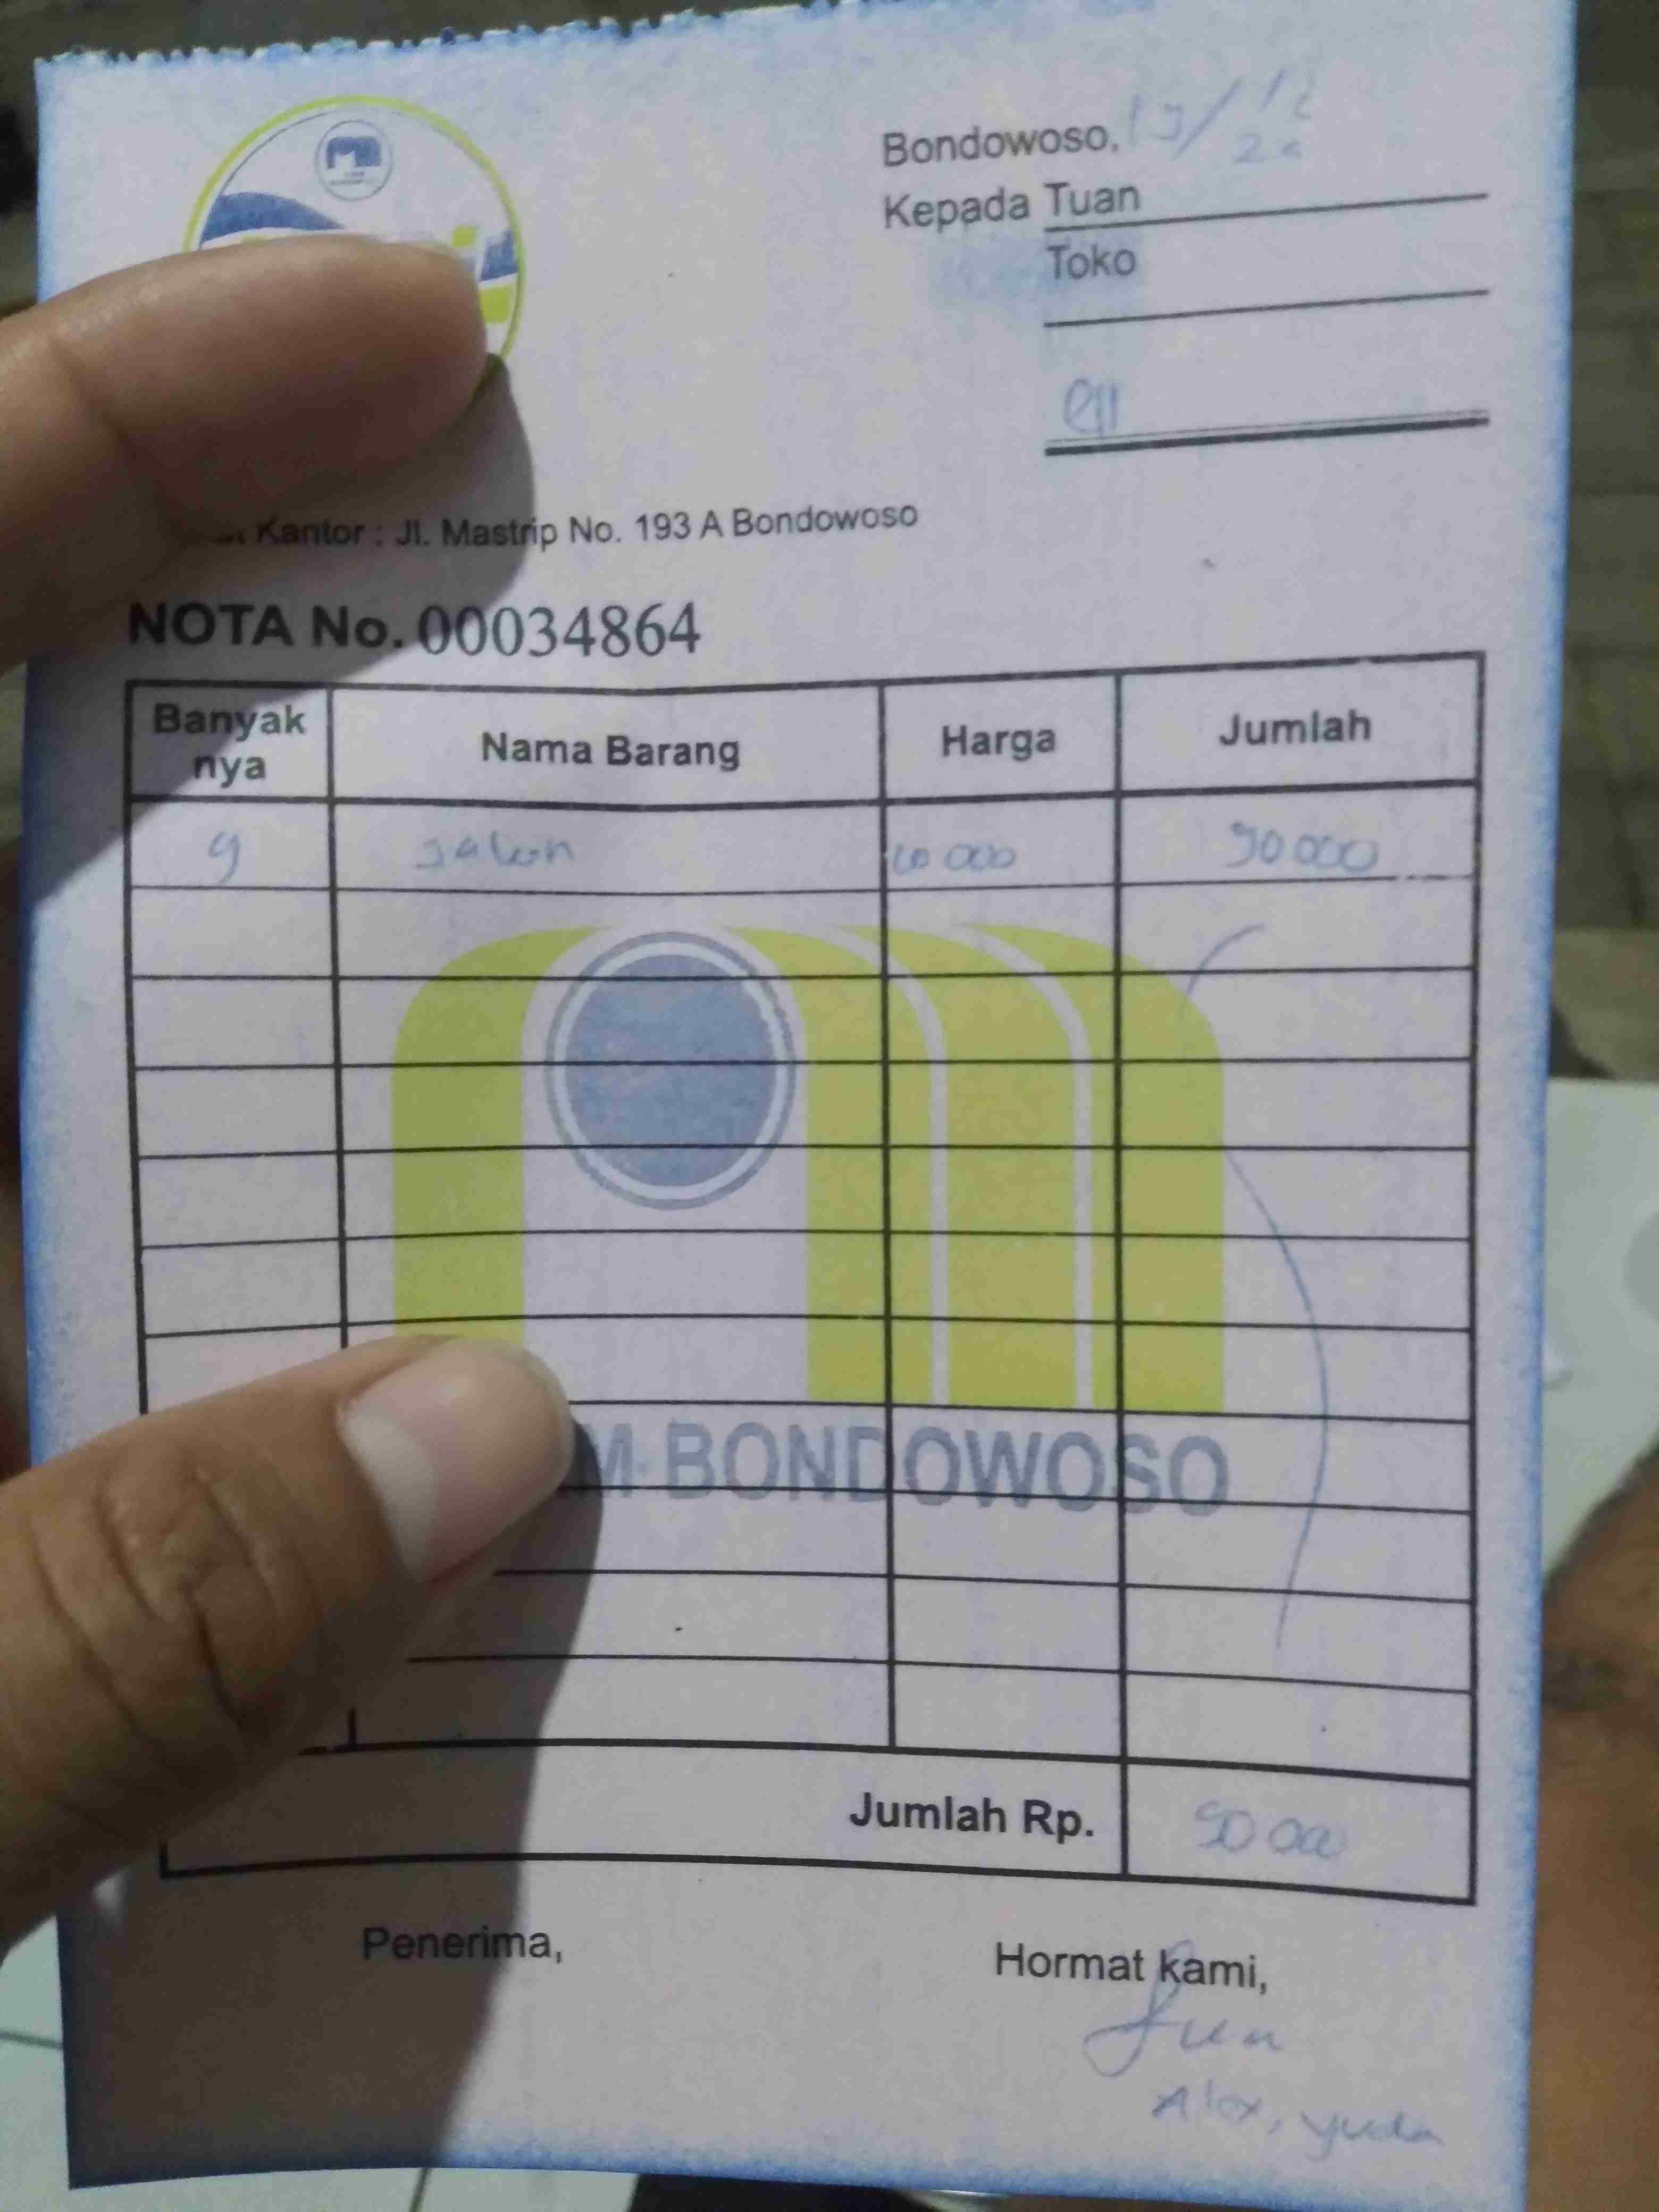 Bondowoso, 19/12
Kepada Tuan
Toko
Kantor : Jl. Mastrip No. 193 A Bondowoso
NOTA No. 00034864
Banyak nya Nama Barang Harga Jumlah
9 galon 10 000 90 000
M BONDOWOSO
Jumlah Rp. 90 000
Penerima, Hormat kami,
Alex, yuda